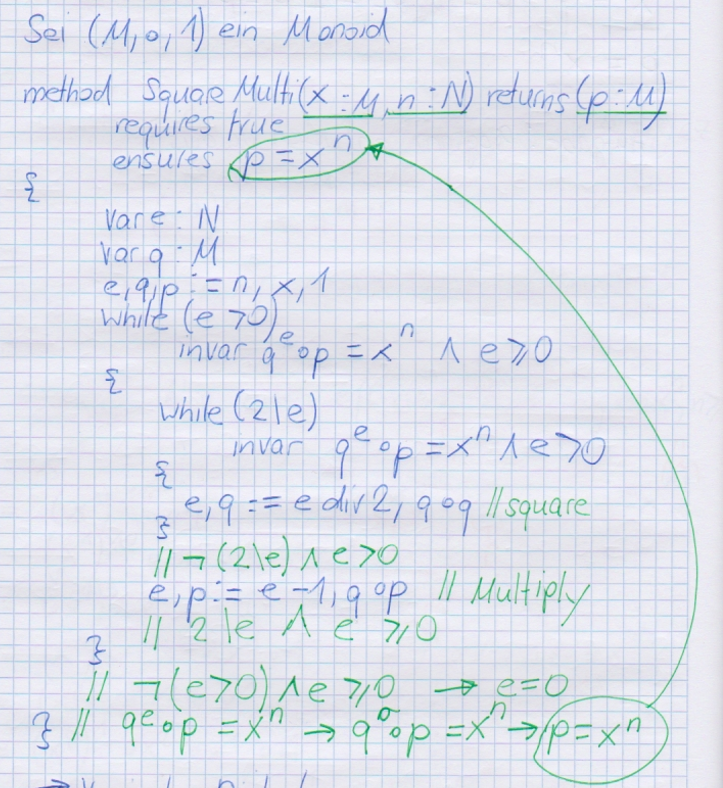 Sei (M,∘,1) ein Monoid
method SquareMulti(x:M, n:N) returns (p:M)
requires true
ensures p = xⁿ
{
var e : N
var q : M
e,q,p := n, x, 1
while (e > 0)
invar qᵉ∘p = xⁿ ∧ e ⩾ 0
{
while (2|e)
invar qᵉ∘p = xⁿ ∧ e > 0
{
e, q := e div 2, q∘q // square
}
// ¬(2|e) ∧ e > 0
e, p := e-1, q∘p // Multiply
// 2|e ∧ e ⩾ 0
}
// ¬(e>0) ∧ e ⩾ 0 → e = 0
} // qᵉ∘p = xⁿ → q⁰∘p = xⁿ → p = xⁿ